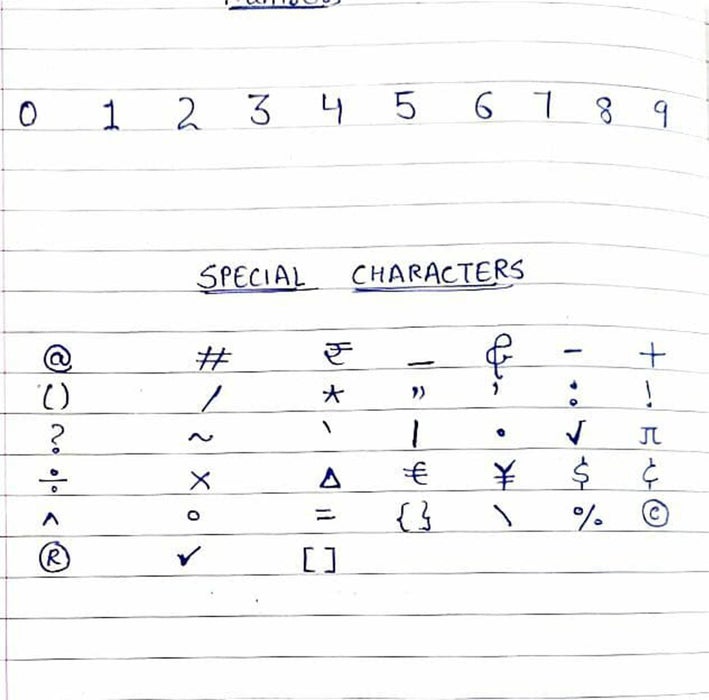 Numbers
0 1 2 3 4 5 6 7 8 9
SPECIAL CHARACTERS
@ # ₹ _ & - +
() / * " ' : !
? ~ ` | • √ π
÷ × Δ € ¥ $ ¢
^ ° = {} \ % ©
® ✓ []